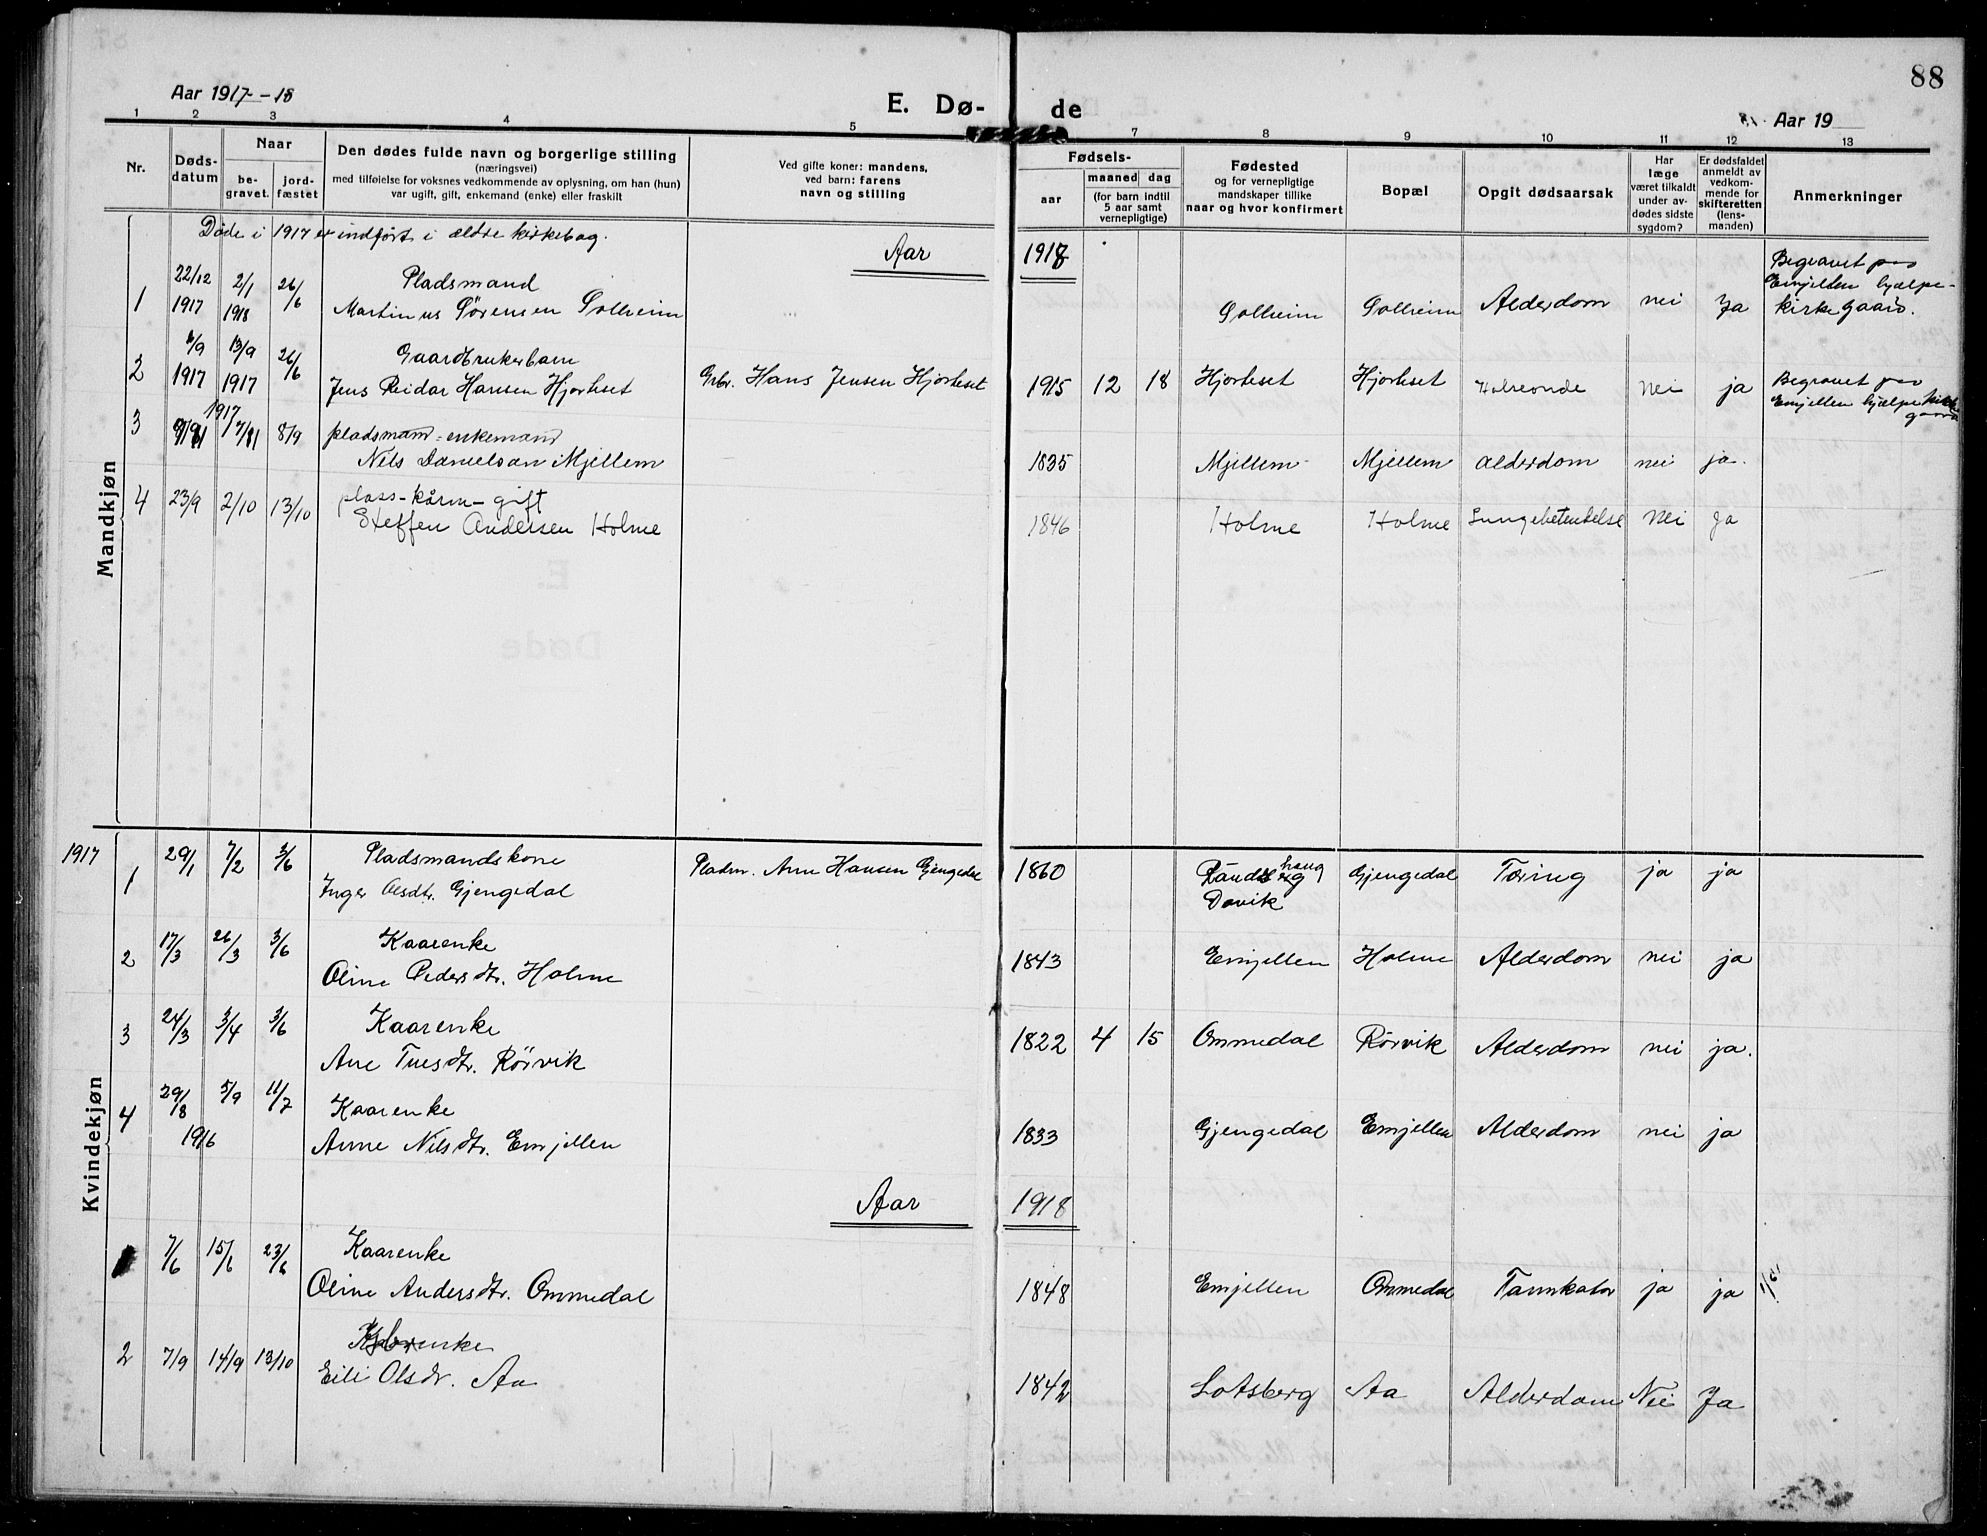 88
Aar 1917-18
E. Dø-
de
Aar 19
1 2 3 4 5 7 8 9 10 11 12 13
Nr.
Døds-
datum
Naar
be-
gravet.
jord-
fæstet
Den dødes fulde navn og borgerlige stilling
(næringsvei)
med tilføielse for voksnes vedkommende av oplysning, om han (hun)
var ugift, gift, enkemand (enke) eller fraskilt
Ved gifte koner: mandens,
ved barn: farens
navn og stilling
Fødsels-
aar
maaned dag
(for barn indtil
5 aar samt
vernepligtige)
Fødested
og for vernepligtige
mandskaper tillike
naar og hvor konfirmert
Bopæl
Opgit dødsaarsak
Har
læge
været tilkaldt
under av-
dødes sidste
sygdom?
Er dødsfaldet
anmeldt av
vedkom-
mende for
skifteretten
(lens-
manden)
Anmerkninger
Døde i 1917 er indført i ældre kirkebog.
Aar 1918
Mandkjøn
1 22/12 1917 2/1 1918 26/6 Pladsmand
Martinus Sørensen Solheim Solheim Solheim Alderdom nei Ja
Begravet paa
Emjellen hjælpe-
kirkegaard.
2 6/9 1917 13/9 1917 26/6 Gaardbrukerbarn
Jens Reidar Hansen Hjorteset Grbr. Hans Jensen Hjorteset 1915 12 18 Hjorteset Hjorteset Nei ja
Begravet paa
Emjellen hjælpekirke
gaard
3 1917 8/9 pladsmand - enkemand
Nils Danielsen Mjellem 1835 Mjellem Mjellem alderdom nei ja.
4 23/9 2/10 13/10 plass-kårm- gift
Steffen Andersen Holme 1846 Holme Holme Lungebetendelse Nei Ja
Kvindekjøn
1917
1 29/1 7/2 3/6 Pladsmandskone
Inger Olsdtr. Gjengedal Pladsm. Arne Hansen Gjengedal 1860 haug
Davik Gjengedal Tæring ja ja
2 17/3 26/3 3/6 Kaarenke
Oline Pedersdtr. Holme 1843 Emjellen Holme Alderdom nei ja
3 24/3 3/4 3/6 Kaarenke
Ane Tuesdtr. Rörvik 1822 4 15 Ommedal Rörvik Alderdom nei ja.
4 29/8 1916 5/9 11/2 Kaarenke
Anne Nilsdtr. Emjellen 1833 Gjengedal Emjellen Alderdom nei ja
Aar 1918
7/6 15/6 23/6 Kaarenke
Oline Andersdtr. Ommedal 1848 Emjellen Ommedal ja ja
2 7/9 14/9 13/10
Eili Olsdr. Aa 1842 Lotsberg Aa Alderdom Nei Ja